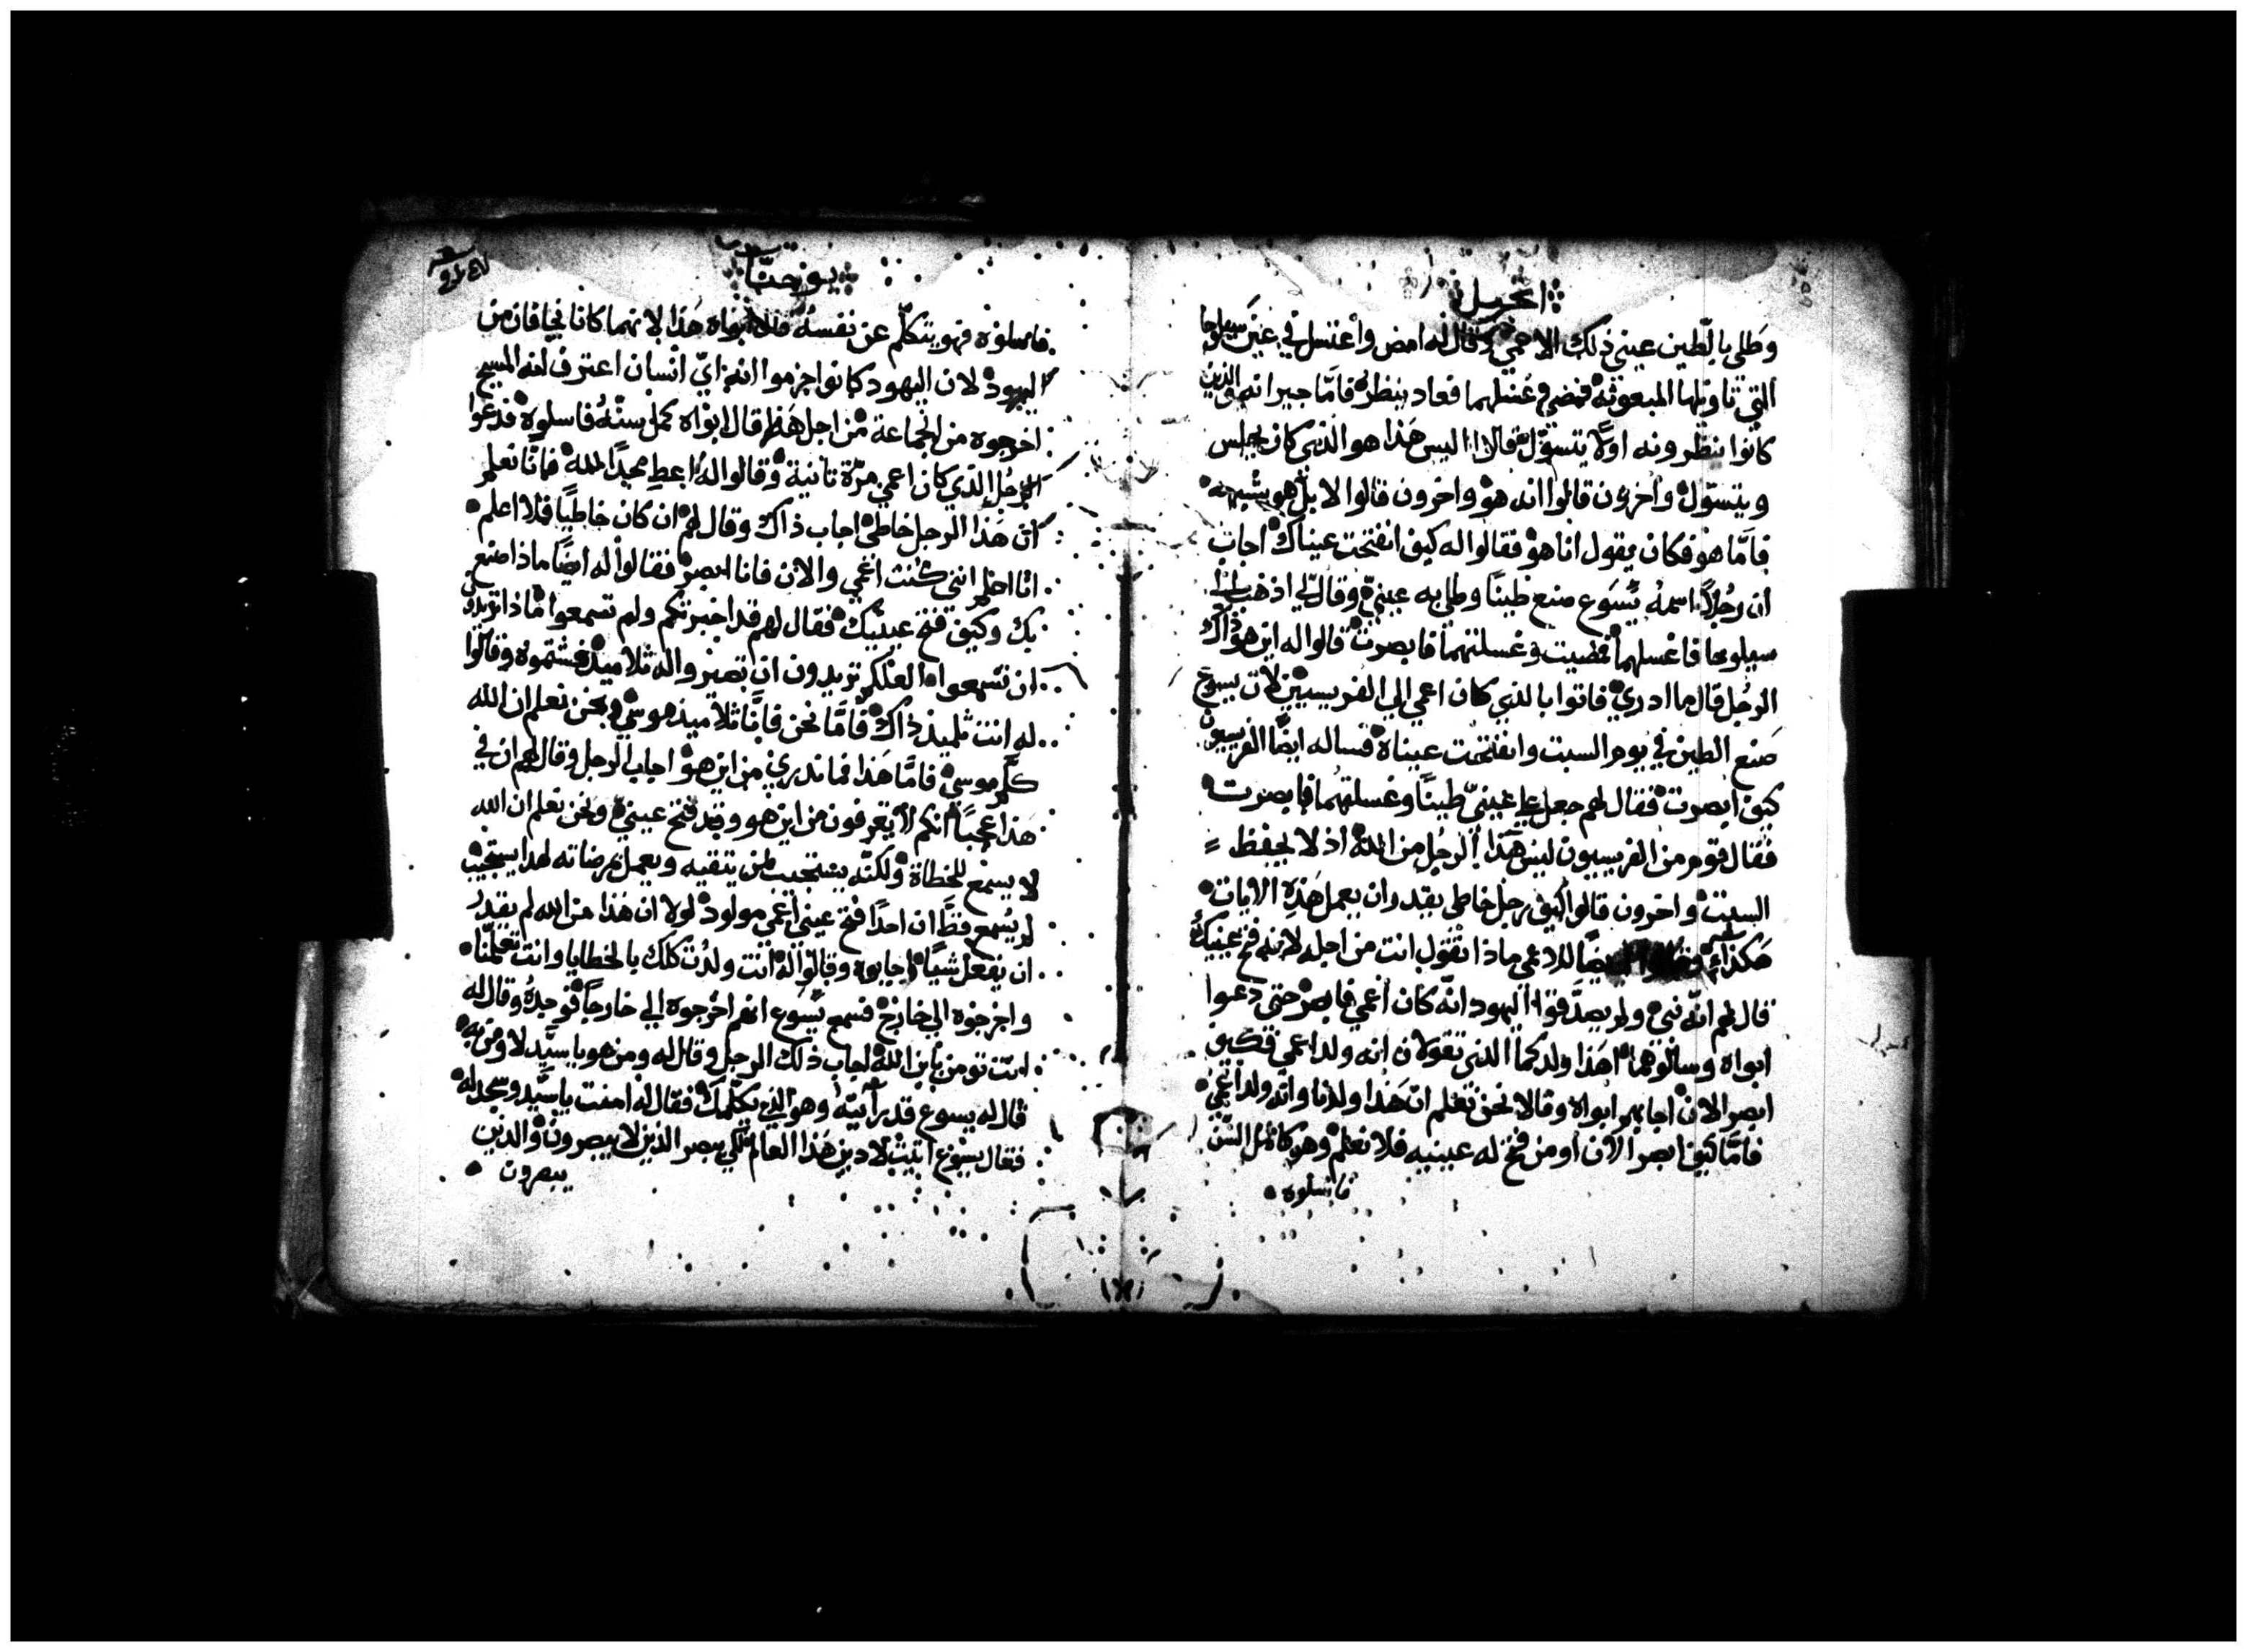 انجيل
وطلي بالطين عيني ذلك الاعمي وقال له امض واغتسل في عين سيلوحا
التي تاويلها المبعوثه فمضي وغسلهما فعاد ينظر فامّا جيرانه الذين
كانوا ينظرونه اولًا يتسوّل قالوا اليس هذا هو الذي كان يجلس
ويتسوّل واخرون قالوا انه هو واخرون قالوا لا بل هو يشبهه
فامّا هو فكان يقول انا هو فقالوا له كيف انفتحت عيناك اجاب
ان رجُلًا اسمهُ يسَوع صنع طينًا وطلي به عينيّ وقال لي اذهب الي
سيلوحا فاغسلهما فمضيت وغسلتهما فابصرت قالوا له اين هو ذاك
الرجُل قال ما ادري فاتوا بالذي كان اعمي الي الفريسيين لان يسوع
صَنع الطين في يوم السبت وانفتحت عيناه فساله ايضًا الفريسيون
كيف ابصرت فقال لهم جعل علي عينيّ طينًا وغسلتهما فابصرت
فقال قوم من الفريسيون ليس هَذا الرجُل من الله اذ لا يحفظ
السبت واخرون قالوا كيف رجل خاطي يقدر ان يعمل هَذِه الايات
هَكذا ايضًا للاعمي ماذا تقول انت من اجله لانه فتح عينيك
قال لهم انّه نبي ولم يصدّقوا اليهود انّه كان اعمي فابصر حتي دعوا
ابواه وسالوهما اهَذا ولدكما الذي تقولان انه ولد اعمي فكيف
ابصر الان اجابهم ابواه وقالا نحن نعلم انّ هَذا ولدنا وانّه ولد اعمي
فامّا كيف ابصر الان او من فتح له عينيه فلا نعلم وهو كامل السّن
فاسلوه
يوحنّا
فاسلوه فهو يتكلّم عن نفسهُ قال ابواه هَذا لانهما كانا يخافان من
اليهود لان اليهود كانوا جزموا انه ايّ انسان اعترف انه المسيح
اخرجوه من الجماعة من اجل هَذا قال ابواه كمل سنّهُ فاسلوه فدعوا
الرجُل الذي كان اعمي مرّة ثانية وقالوا لهُ اعطِ مجدًا لله فانّا نعلم
انّ هَذا الرجل خاطي اجاب ذاك وقال لهم ان كان خاطيًا فلا اعلم
انا اعلم انني كنت اعمي والان فانا ابصر فقالوا له ايضًا ماذا صنع
بك وكيف فتح عينيك فقال لهم قد اخبرتكم ولم تسمعوا ماذا تريدون
ان تسمعوا العلكم تريدون ان تصيروا له تلاميذ فشتموه وقالوا
له انت تلميذ ذاك فامّا نحن فانّا تلاميذ موسي ونحن نعلم ان الله
كلّم موسي فامّا هَذا فما ندري من اين هو اجاب الرجل وقال لهم ان في
هَذا عجبًا انكم لا تعرفون من اين هو وقد فتح عينيّ ونحن نعلم ان الله
لا يسمع للخطاة ولكنّه يستجيب لمن يتقيه ويعمل مرضاته لهدا يستجيب
لم يُسمع قطّ ان احدًا فتح عيني اعمي مولود لولا ان هَذا من الله لم يقدر
ان يفعل شيًا اجابوه وقالوا له انت ولدُت كلك بالخطايا وانت تعلّمنا
واخرجوه الي خارج فسمع يسَوع انهم اخرجوه الي خارجًا فوجدهُ وقال له
انت تومن بابن الله اجاب ذلك الرجل وقال له ومن هو يا سيّد لاومن به
قال له يسوع قد رأيتهُ وهو الذي يكلّمك فقال له امنت يا سيّد وسجد له
فقال يسوع اتيت لادين هَذا العالم لكي يبصر الذين لا يبصرون والذين
يبصرون